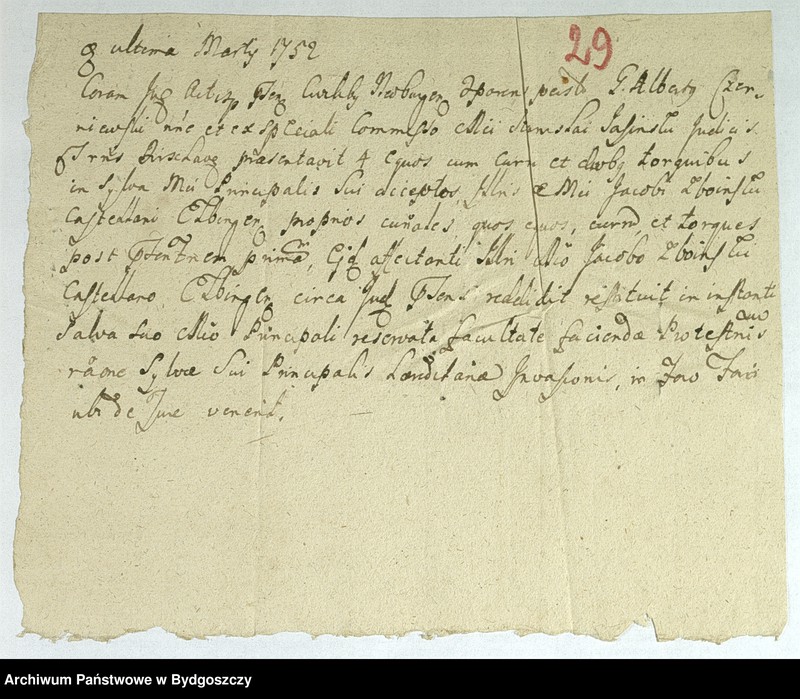 ultima Marty 1752
29
Coram Jud Actisq pntn Newburgen G. Alberty Czer-
niewski nne et ex spciali Commisso Mci Stanislai Jasinski Judicis
Trris Dirschav præsentavit 4 Equos cum curru et torquibus
in Sylva Mci Principalis Sui acceptos, Illris Mci Jacobi Zboinski
Castellani Elbingen proprios quos equos, currū et torques
post affectanti Illri Mco Jacobo Zboinski
Castellano Elbingen circa Jud pntn reddidit restituit in instanti
Salva suo Mco Principali reservata facultate faciendæ Protestnis
råone Sylvæ Sui Principalis Invasionis, in foro Fori
ubi de Jure venerit.
Archiwum Państwowe w Bydgoszczy